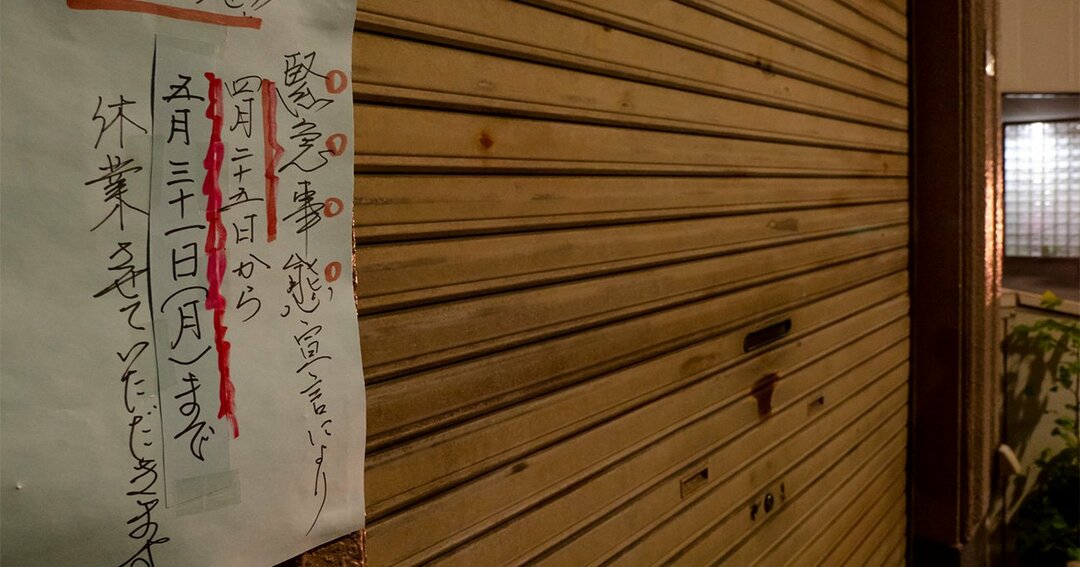 緊急事態宣言により
四月二十五日から
五月三十一日(月)まで
休業させていただきます